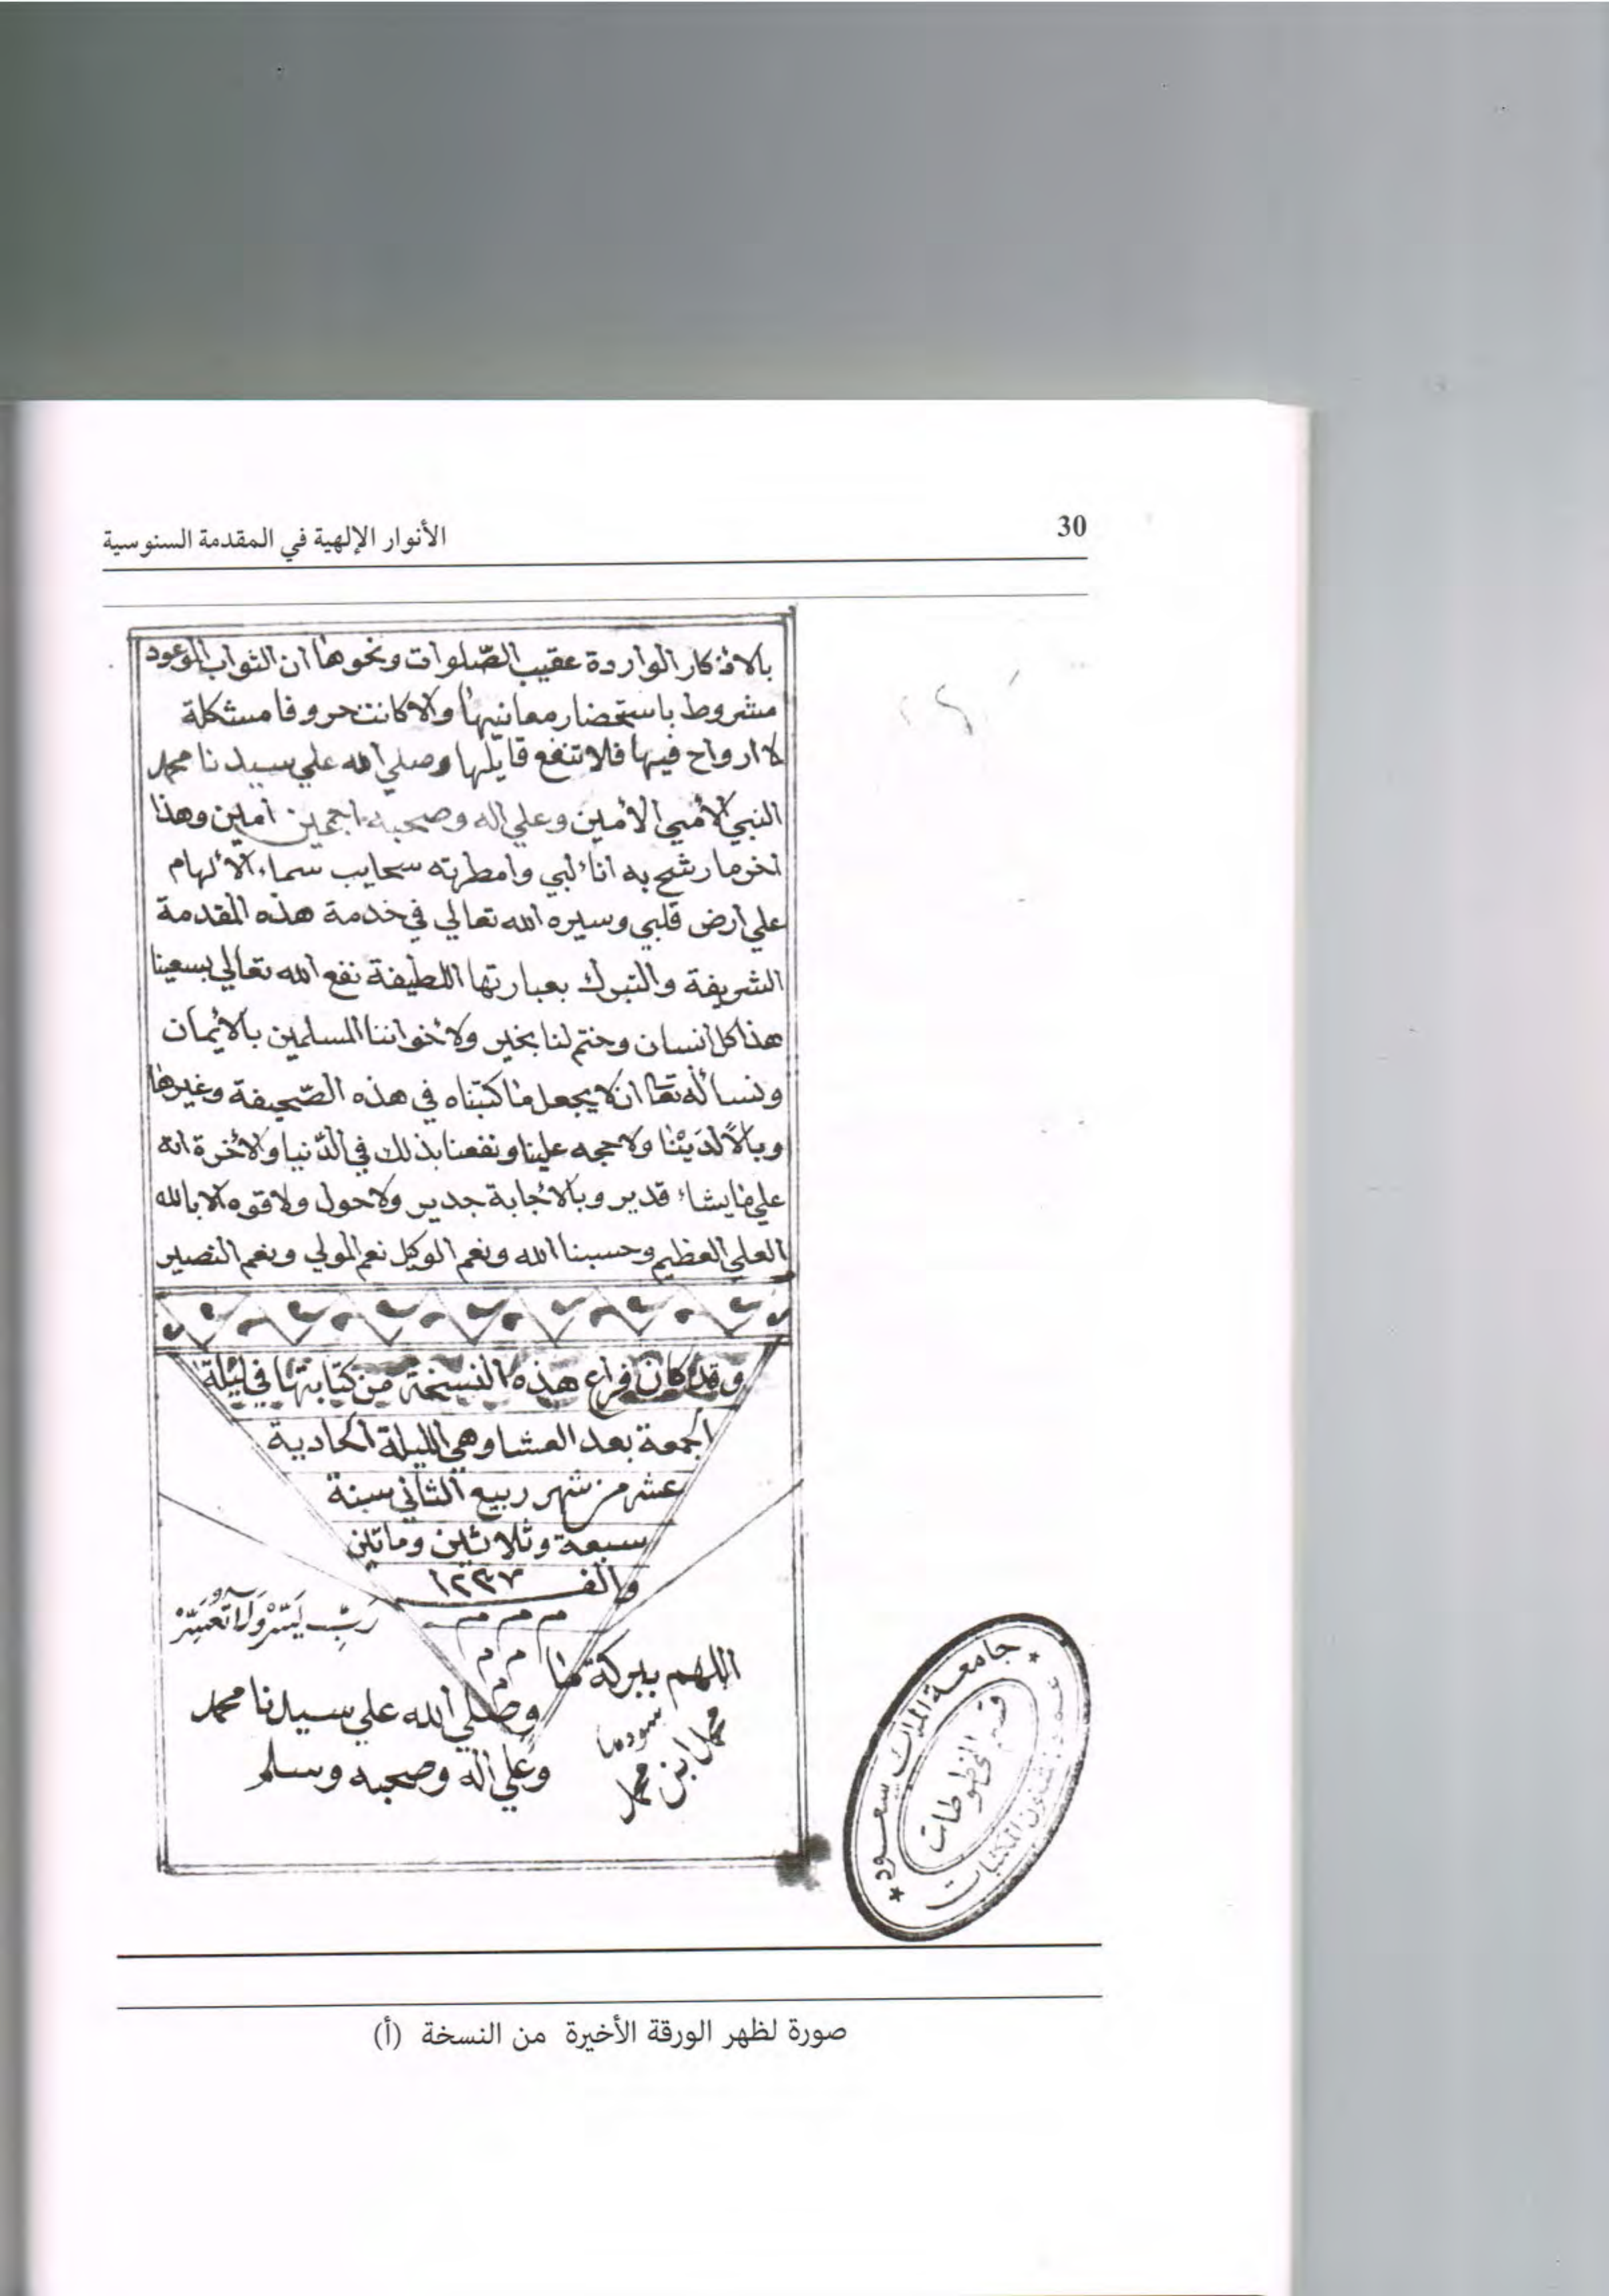 30
الأنوار الإلهية في المقدمة السنوسية
بالاذكار الواردة عقيب الصّلوات ونحوها ان الثواب الموعود
مشروط باستحضار معانيها والا كانت حروفا مشكلة
لا ارواح فيها فلا تنفع قايلها وصلي الله علي سيدنا محمد
النبي الأمي الأمين وعلي اله وصحبه اجمعين امين وهذا
اخر ما رشح به اناء لبي وامطرته سحايب سماء الألهام
علي ارض قلبي وسيره الله تعالي في خدمة هذه المقدمة
الشريفة والتبرك بعبارتها اللطيفة نفع الله تعالي بسعينا
هذا كل انسان وختم لنا بخير ولأخواننا المسلمين بالأيمان
ونسأله تعا ان لا يجعل ما كتبناه في هذه الصّحيفة وغيرها
وبالاً لدَيْنا ولا حجه علينا ونفعنا بذلك في الدّنيا والأخرة انه
علي ما يشاء قدير وبالأجابة جدير ولا حول ولا قوه الا بالله
العلي العظيم وحسبنا الله ونعم الوكيل نعم المولي ونعم النصير
وقد كان فراغ هذه النسخة من كتابتها في ليلة
الجمعة بعد العشا وهي الليلة الحادية
عشر من شهر ربيع الثاني سنة
سبعة وثلاثين وماتين
والف ١٢٣٧
م م م
م م
م
رَبِّ يَسِّرْ وَلَا تُعَسِّرْ
اللهم ببركة
محمد ابن محمد
وصلي الله علي سيدنا محمد
وعلي اله وصحبه وسلم
جامعة الملك سعود
عمادة شئون المكتبات
قسم المخطوطات
صورة لظهر الورقة الأخيرة من النسخة (أ)